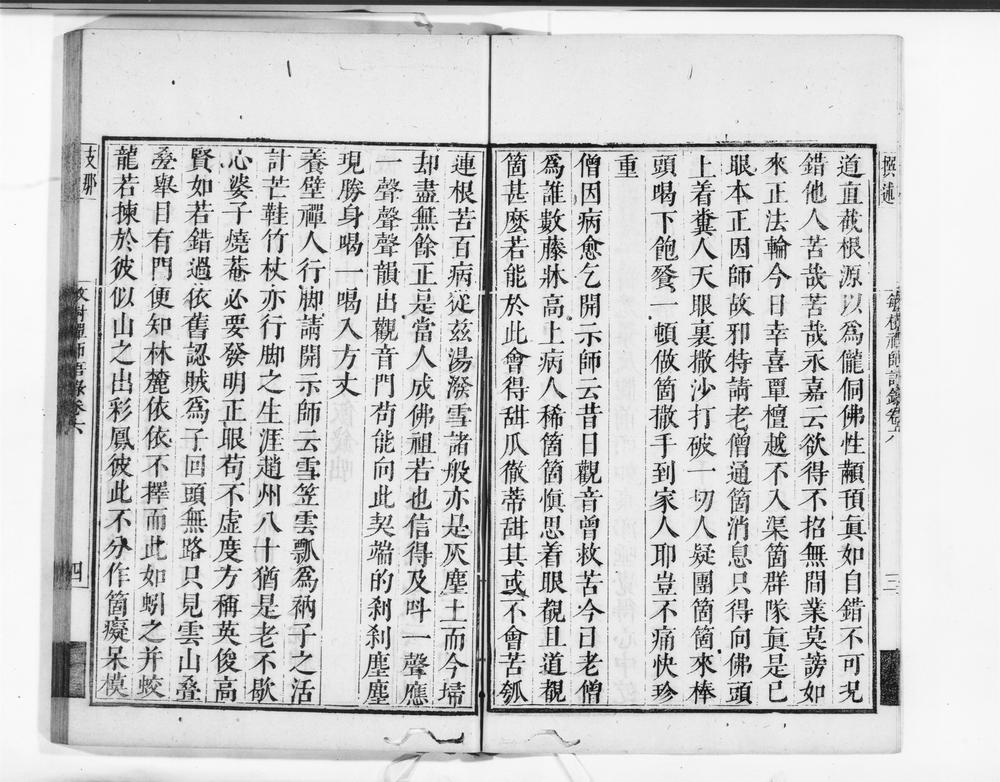 道直截根源以為儱侗佛性顢頇真如自錯不可況
錯他人苦哉苦哉永嘉云欲得不招無間業莫謗如
來正法輪今日幸喜單檀越不入渠箇群隊真是已
眼本正因師故邪特請老僧通箇消息只得向佛頭
上着糞人天眼裏撒沙打破一切人疑團箇箇來棒
頭喝下飽餐一頓做箇撒手到家人耶豈不痛快珍
重
僧因病愈乞開示師云昔日觀音曾救苦今日老僧
為誰數藤牀高上病人稀箇箇慎思着眼覷且道覷
箇甚麼若能於此會得甜瓜徹蒂甜其或不會苦瓠
連根苦百病從茲湯潑雪諸般亦是灰塵土而今埽
却盡無餘正是當人成佛祖若也信得及呌一聲應
一聲聲聲韻出觀音門苟能向此契端的剎剎塵塵
現勝身喝一喝入方丈
養壁禪人行脚請開示師云雪笠雲瓢為衲子之活
計苦鞋竹杖亦行脚之生涯趙州八十猶是老不歇
心婆子燒菴必要發明正眼苟不虛度方稱英俊高
賢如若錯過依舊認賊為子回頭無路只見雲山疊
疊舉目有門便知林麓依依不擇而此如蚓之并蛟
龍若揀於彼似山之出彩鳳彼此不分作箇癡呆模
支那
四
三